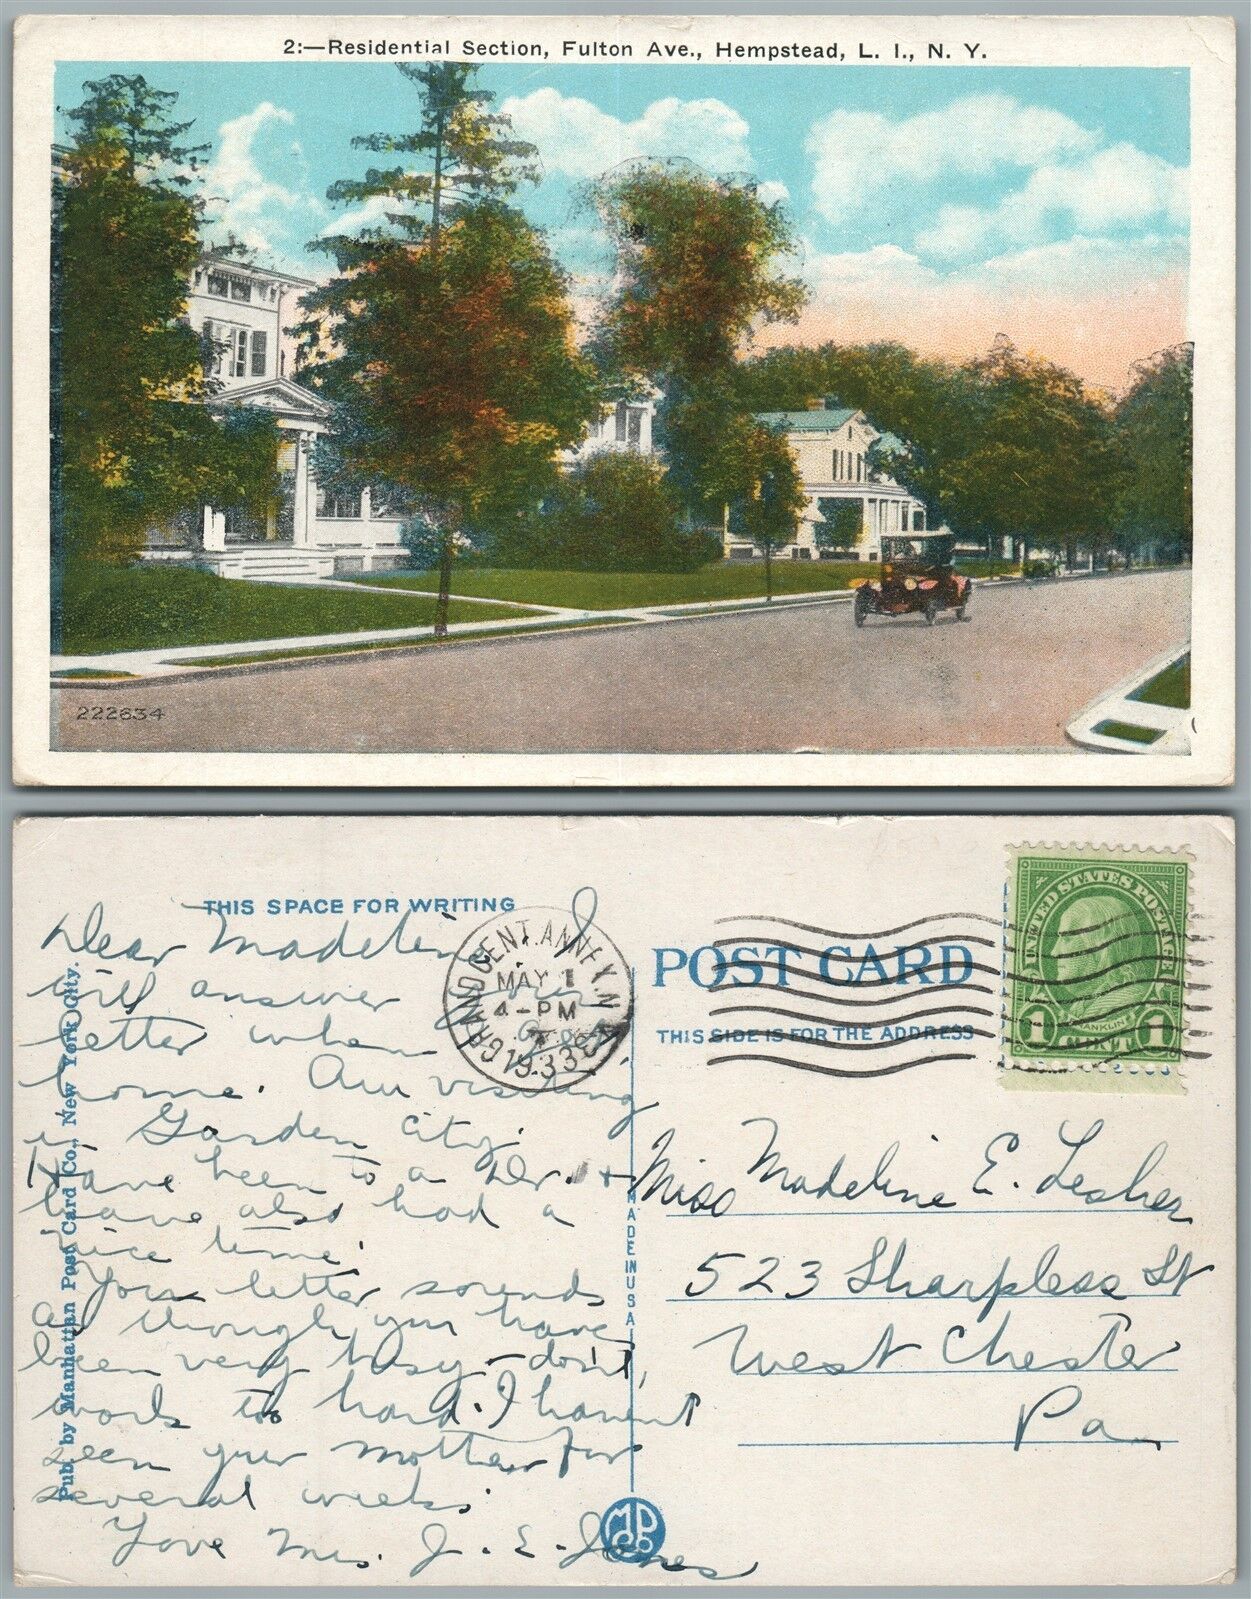 2:—Residential Section, Fulton Ave., Hempstead, L. I., N. Y.
222634
THIS SPACE FOR WRITING
Dear Madeline, I
will answer your
letter when I get
home. Am visiting
in Garden City.
Have been to a Dr. +
have also had a
nice time.
Your letter sounds
as though you have
been very busy - don't
work too hard. I havent
seen your mother for
several weeks.
Love Mrs. J. E. Jones
Pub. by Manhattan Post Card Co., New York City.
MADE IN U S A
GRAND CENT. ANNEX N.Y.
MAY 1
4-PM
1933
POST CARD
THIS SIDE IS FOR THE ADDRESS
UNITED STATES POSTAGE
FRANKLIN
1 CENT 1
Miss Madeline E. Lesher
523 Sharpless St
West Chester
Pa.